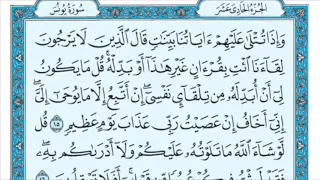 الجزء الحادي عشر
سورة يونس
وَإِذَا تُتْلَىٰ عَلَيْهِمْ ءَايَاتُنَا بَيِّنَاتٍ قَالَ الَّذِينَ لَا يَرْجُونَ
لِقَاءَنَا ائْتِ بِقُرْءَانٍ غَيْرِ هَٰذَا أَوْ بَدِّلْهُ قُلْ مَا يَكُونُ
لِي أَنْ أُبَدِّلَهُ مِن تِلْقَاءِ نَفْسِي إِنْ أَتَّبِعُ إِلَّا مَا يُوحَىٰ إِلَيَّ
إِنِّي أَخَافُ إِنْ عَصَيْتُ رَبِّي عَذَابَ يَوْمٍ عَظِيمٍ ١٥ قُل
لَّوْ شَاءَ اللَّهُ مَا تَلَوْتُهُ عَلَيْكُمْ وَلَا أَدْرَاكُم بِهِ